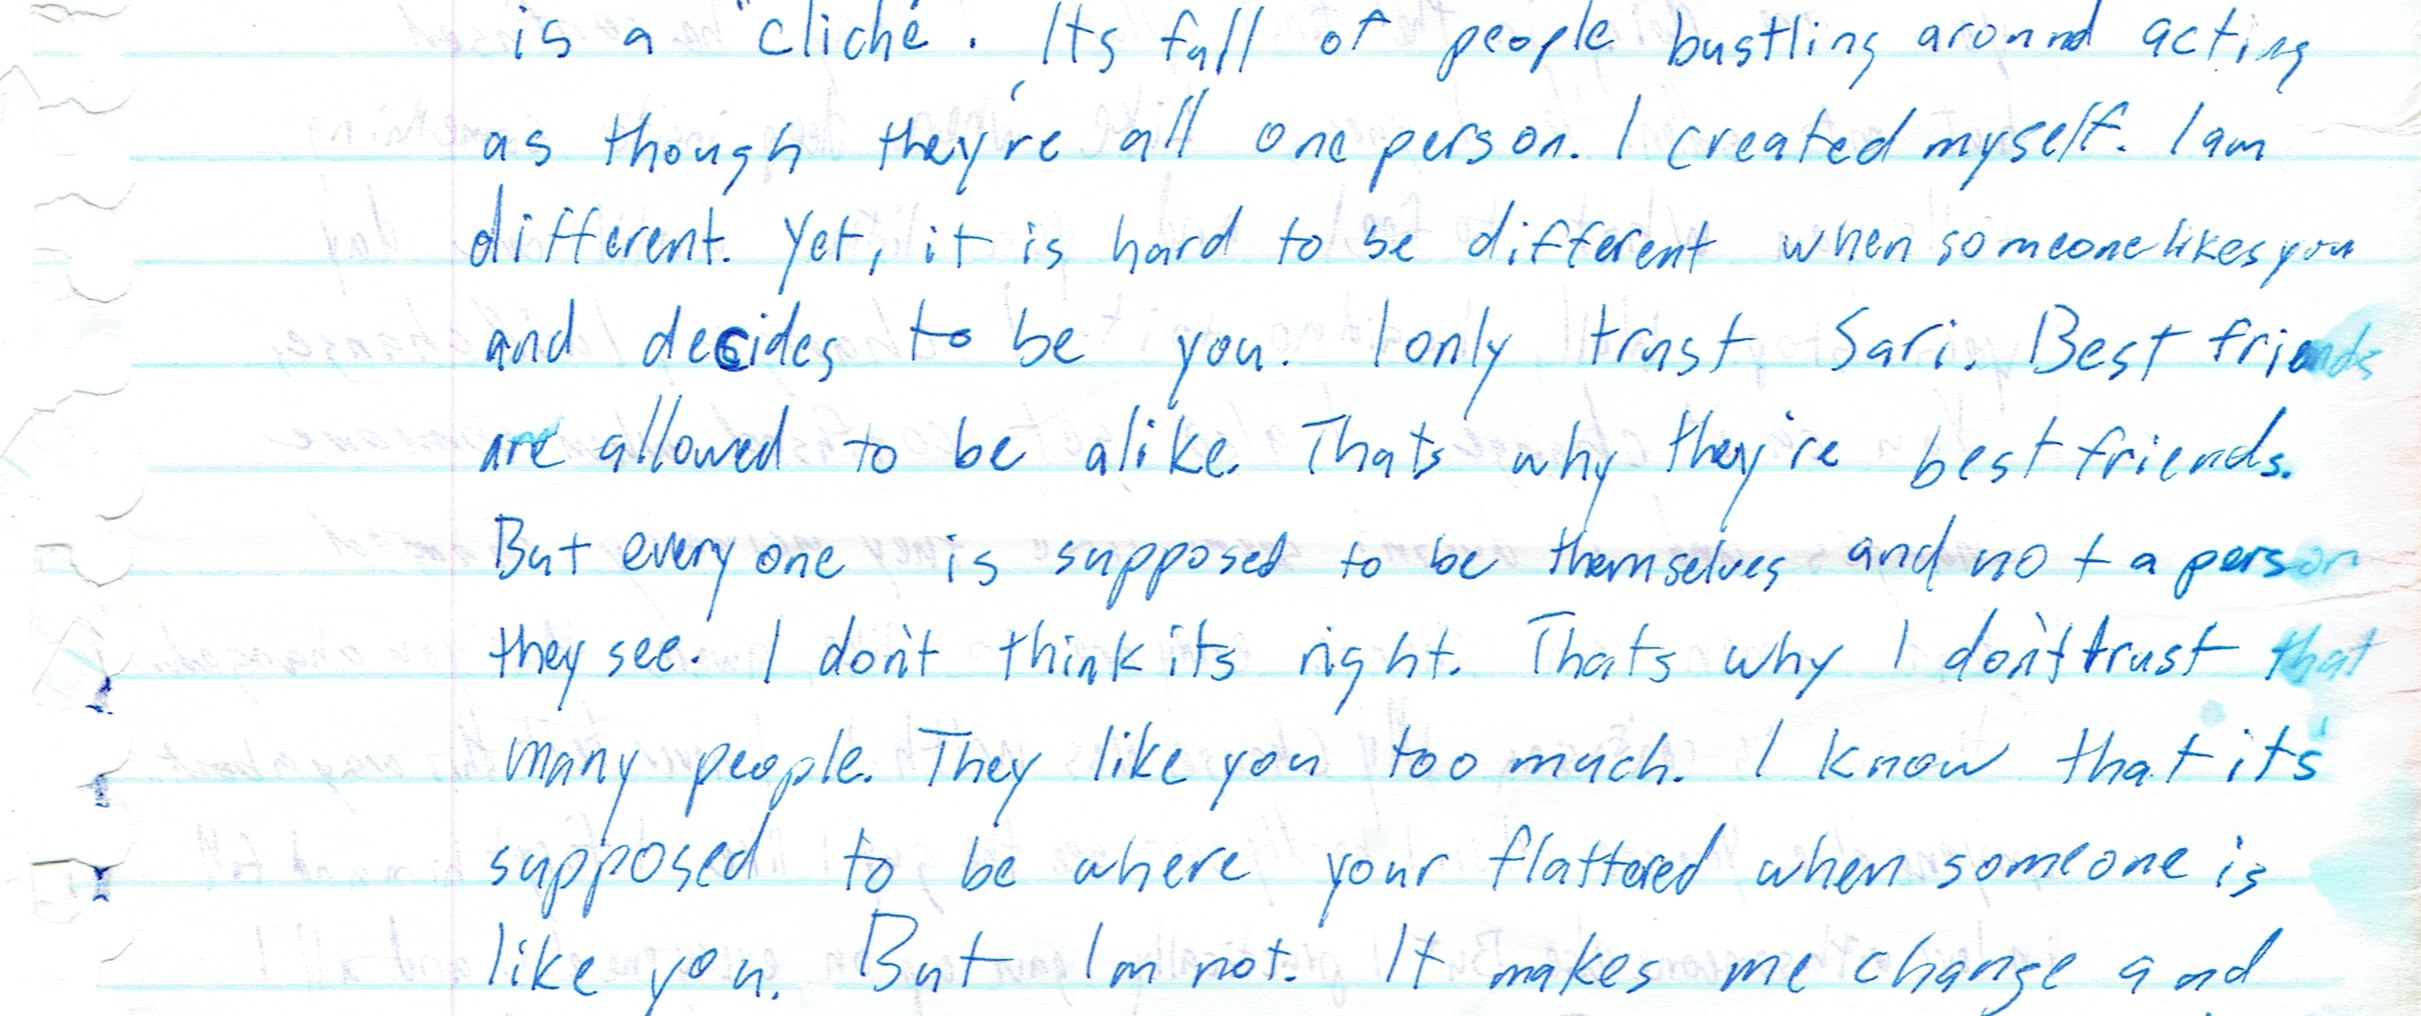 is a "cliché". Its full of people bustling around acting
as though they're all one person. I created myself. I am
different. Yet, it is hard to be different when someone likes you
and decides to be you. I only trust Sari. Best friends
are allowed to be alike. Thats why they're best friends.
But everyone is supposed to be themselves and not a person
they see. I don't think its right. Thats why I don't trust that
many people. They like you too much. I know that it's
supposed to be where your flattered when someone is
like you. But Im not. It makes me change and